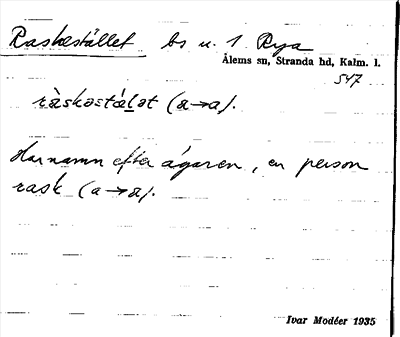 Raskestället bs u. 1 Rya
Ålems sn, Stranda hd, Kalm. l.
547
ràskəstáḷət (a→a).
Har namn efter ägaren, en person
rask (a→a).
Ivar Modéer 1935